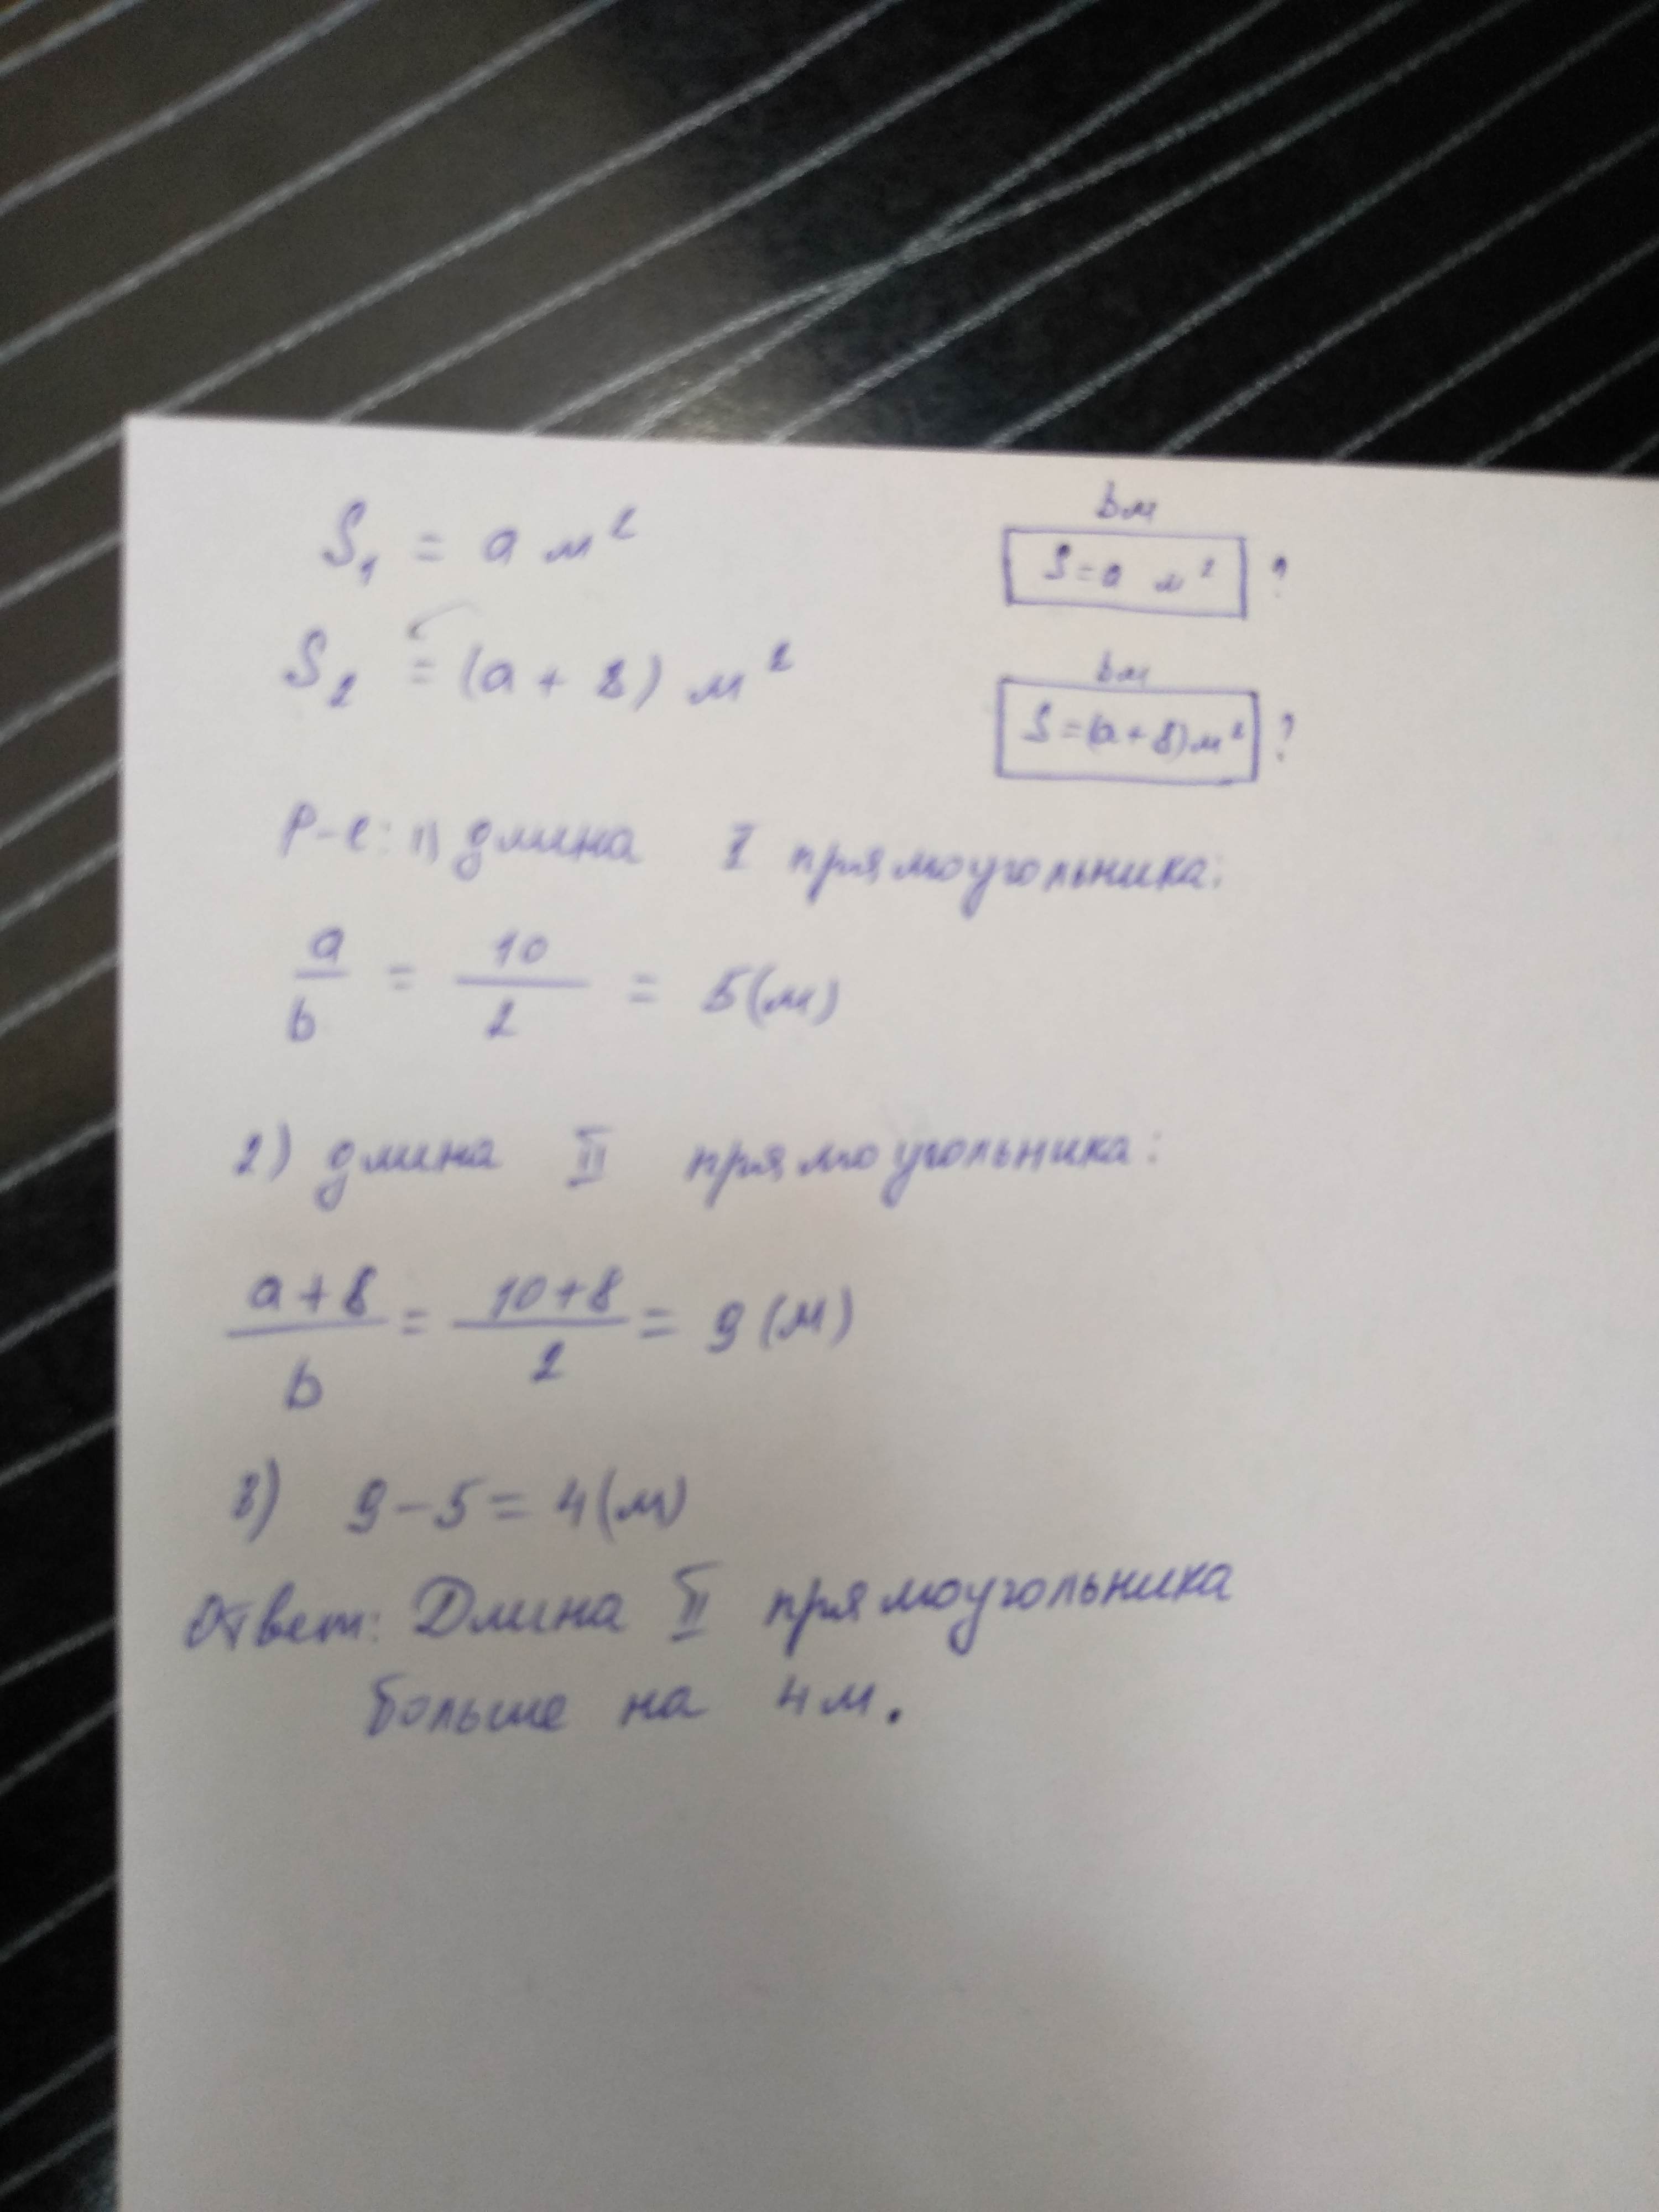 S₁ = a м²
bм
S=a м² ?
S₂ = (a + 8) м²
bм
S=(a+8)м² ?
Р-е: 1) длина I прямоугольника:
a/b = 10/2 = 5(м)
2) длина II прямоугольника:
a+8/b = 10+8/2 = 9 (м)
3) 9-5=4(м)
Ответ: Длина II прямоугольника
больше на 4м.